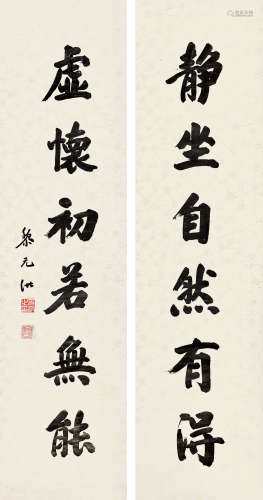 静坐自然有得
虛懷初若無能
黎元洪